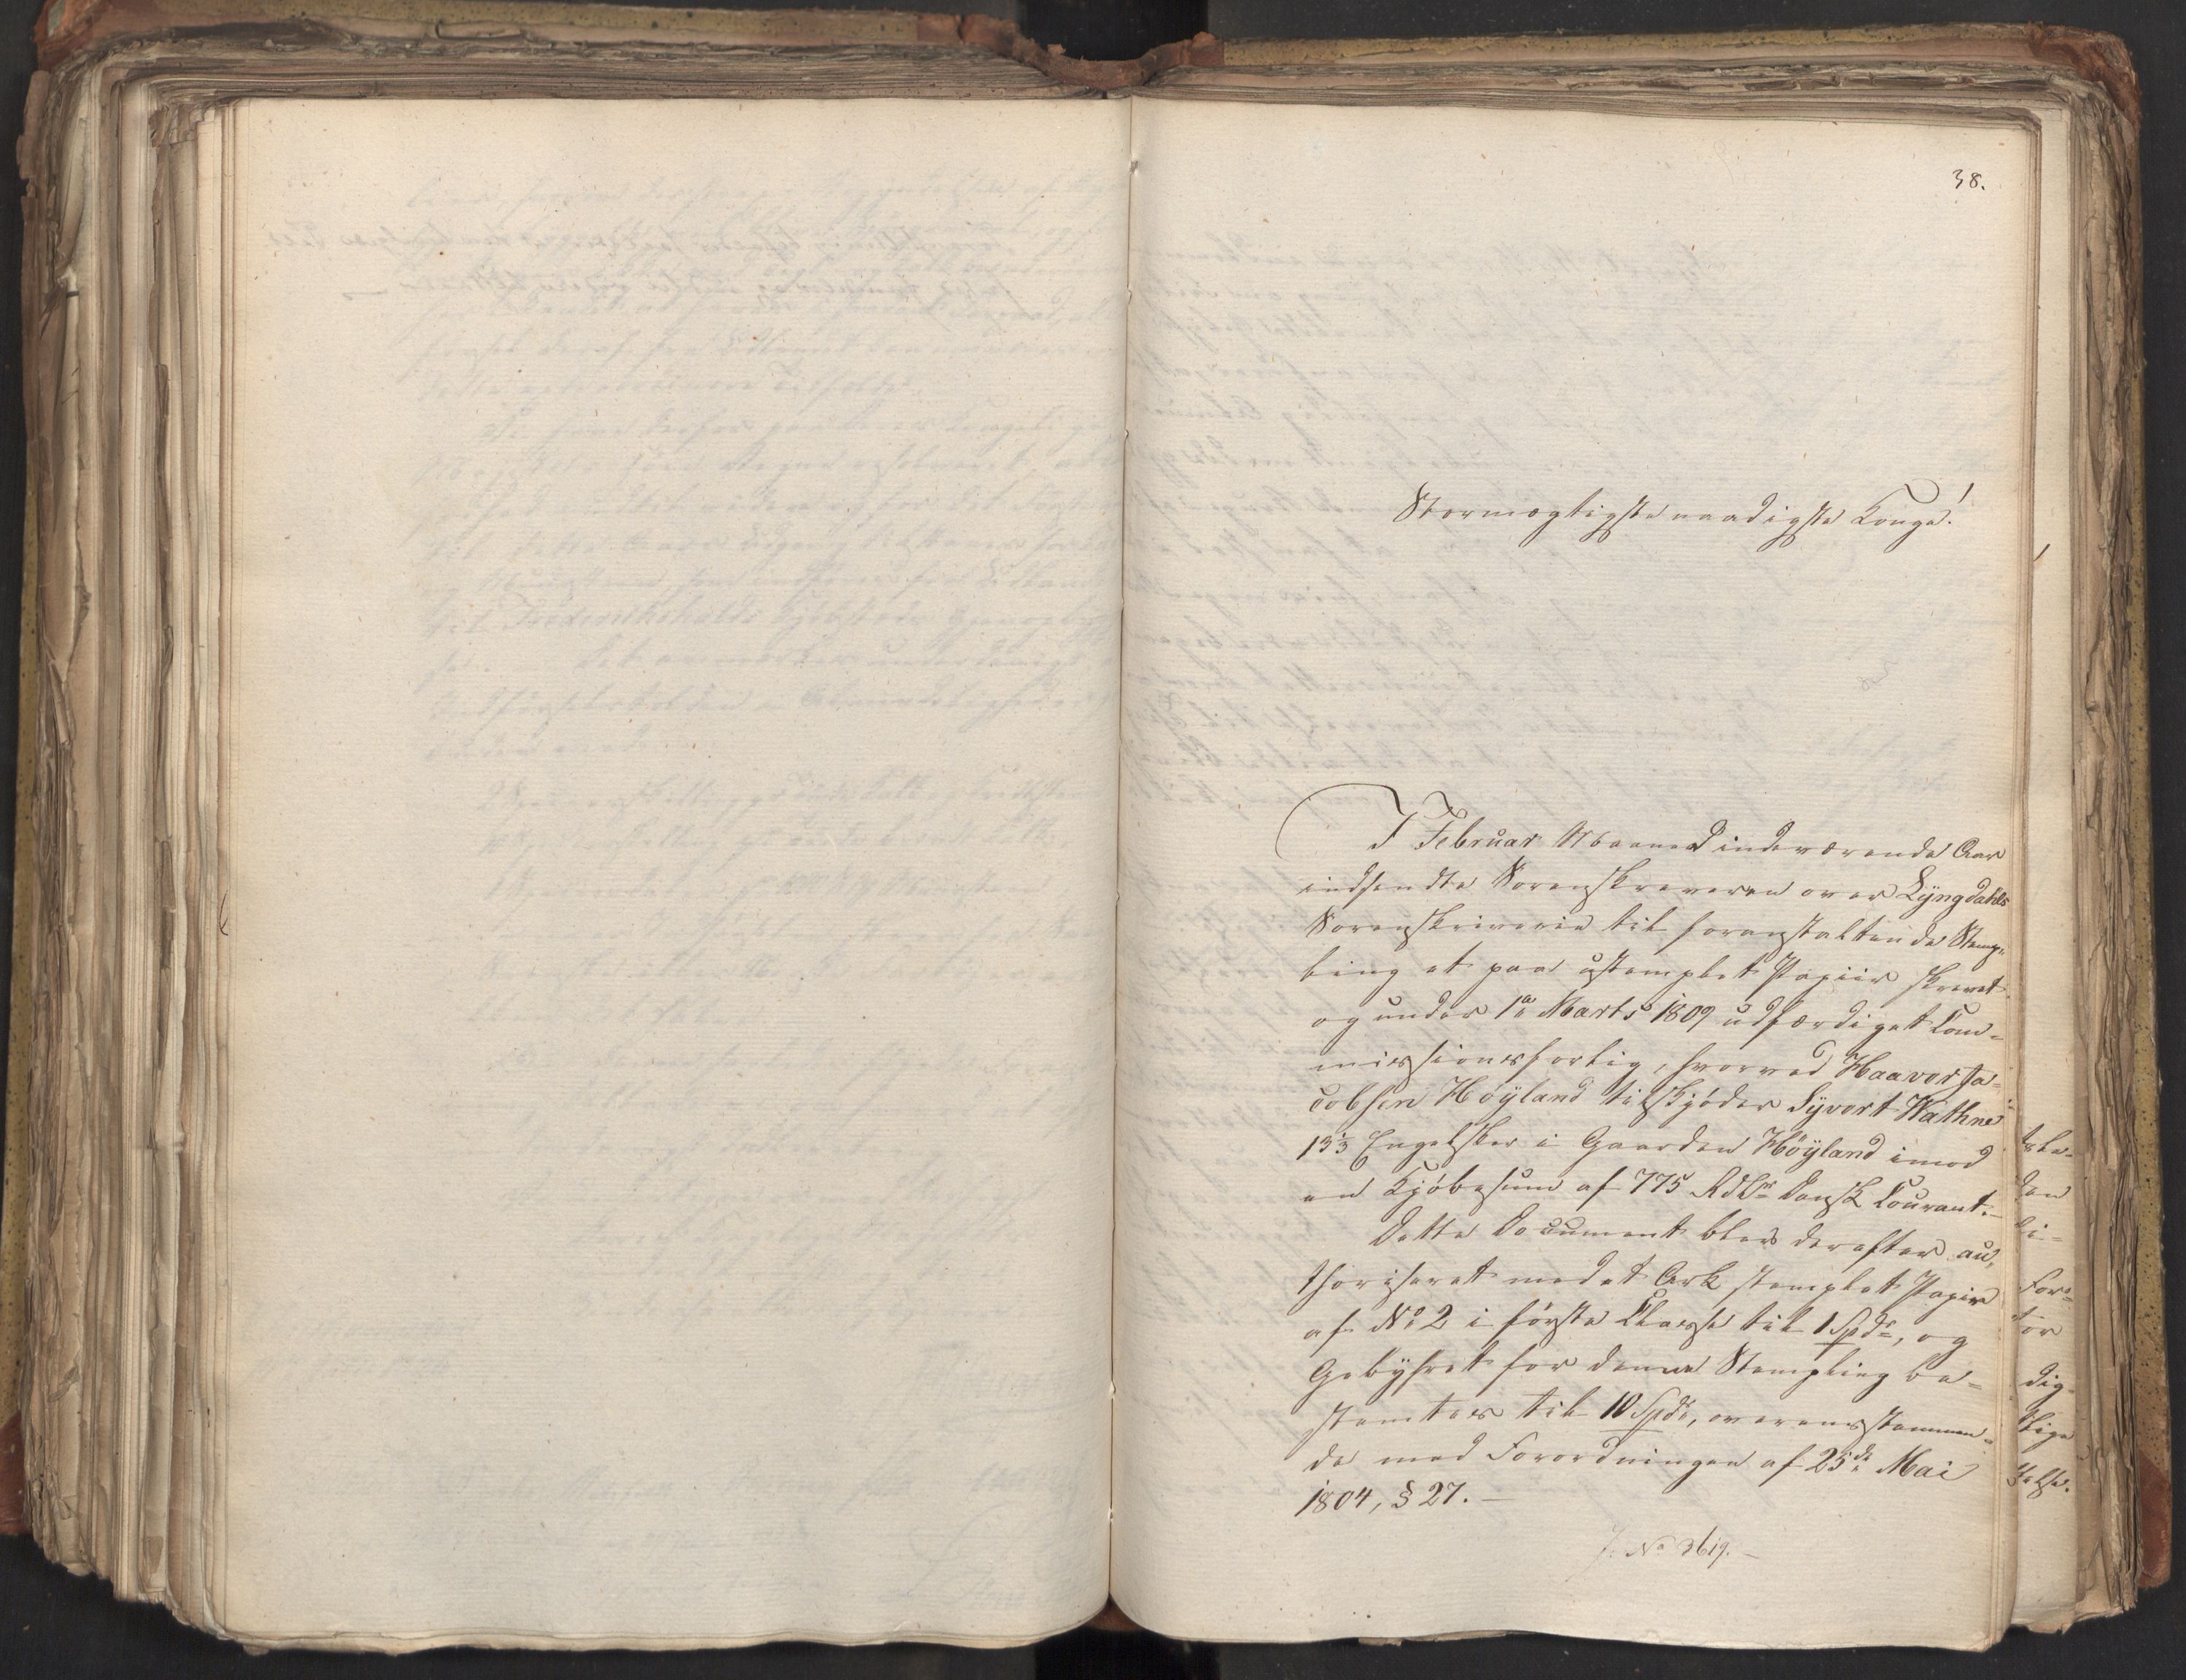 38.
Stormægtigste naadigste Konge!
I Februar Maaned indeværende Aar
indsendte Sorenskriveren over Lyngdahls
Sorenskriverie til foranstaltende Stemp-
ling et paa ustemplet Papiir skrevet
og under 1te Marts 1809 udfærdiget Com-
missionsforlig, hvorved Haavor Ja-
cobsen Höyland tilskjøder Syvert Wathne
13 1/3 Engelsker i Gaarden Höyland imod
en Kjøbesum af 775 Rdlr Dansk Courant.-
Dette Document blev derefter au-
thoriseret med et Ark stemplet Papir
af No 2 i første Classe til 1 Spdr, og
Gebyhret for denne Stempling be-
stemtes til 10 Spdr, overensstemmen-
de med Forordningen af 25de Mai
1804, § 27.-
J. No 3619.-
den
For-
tør
dig-
lige